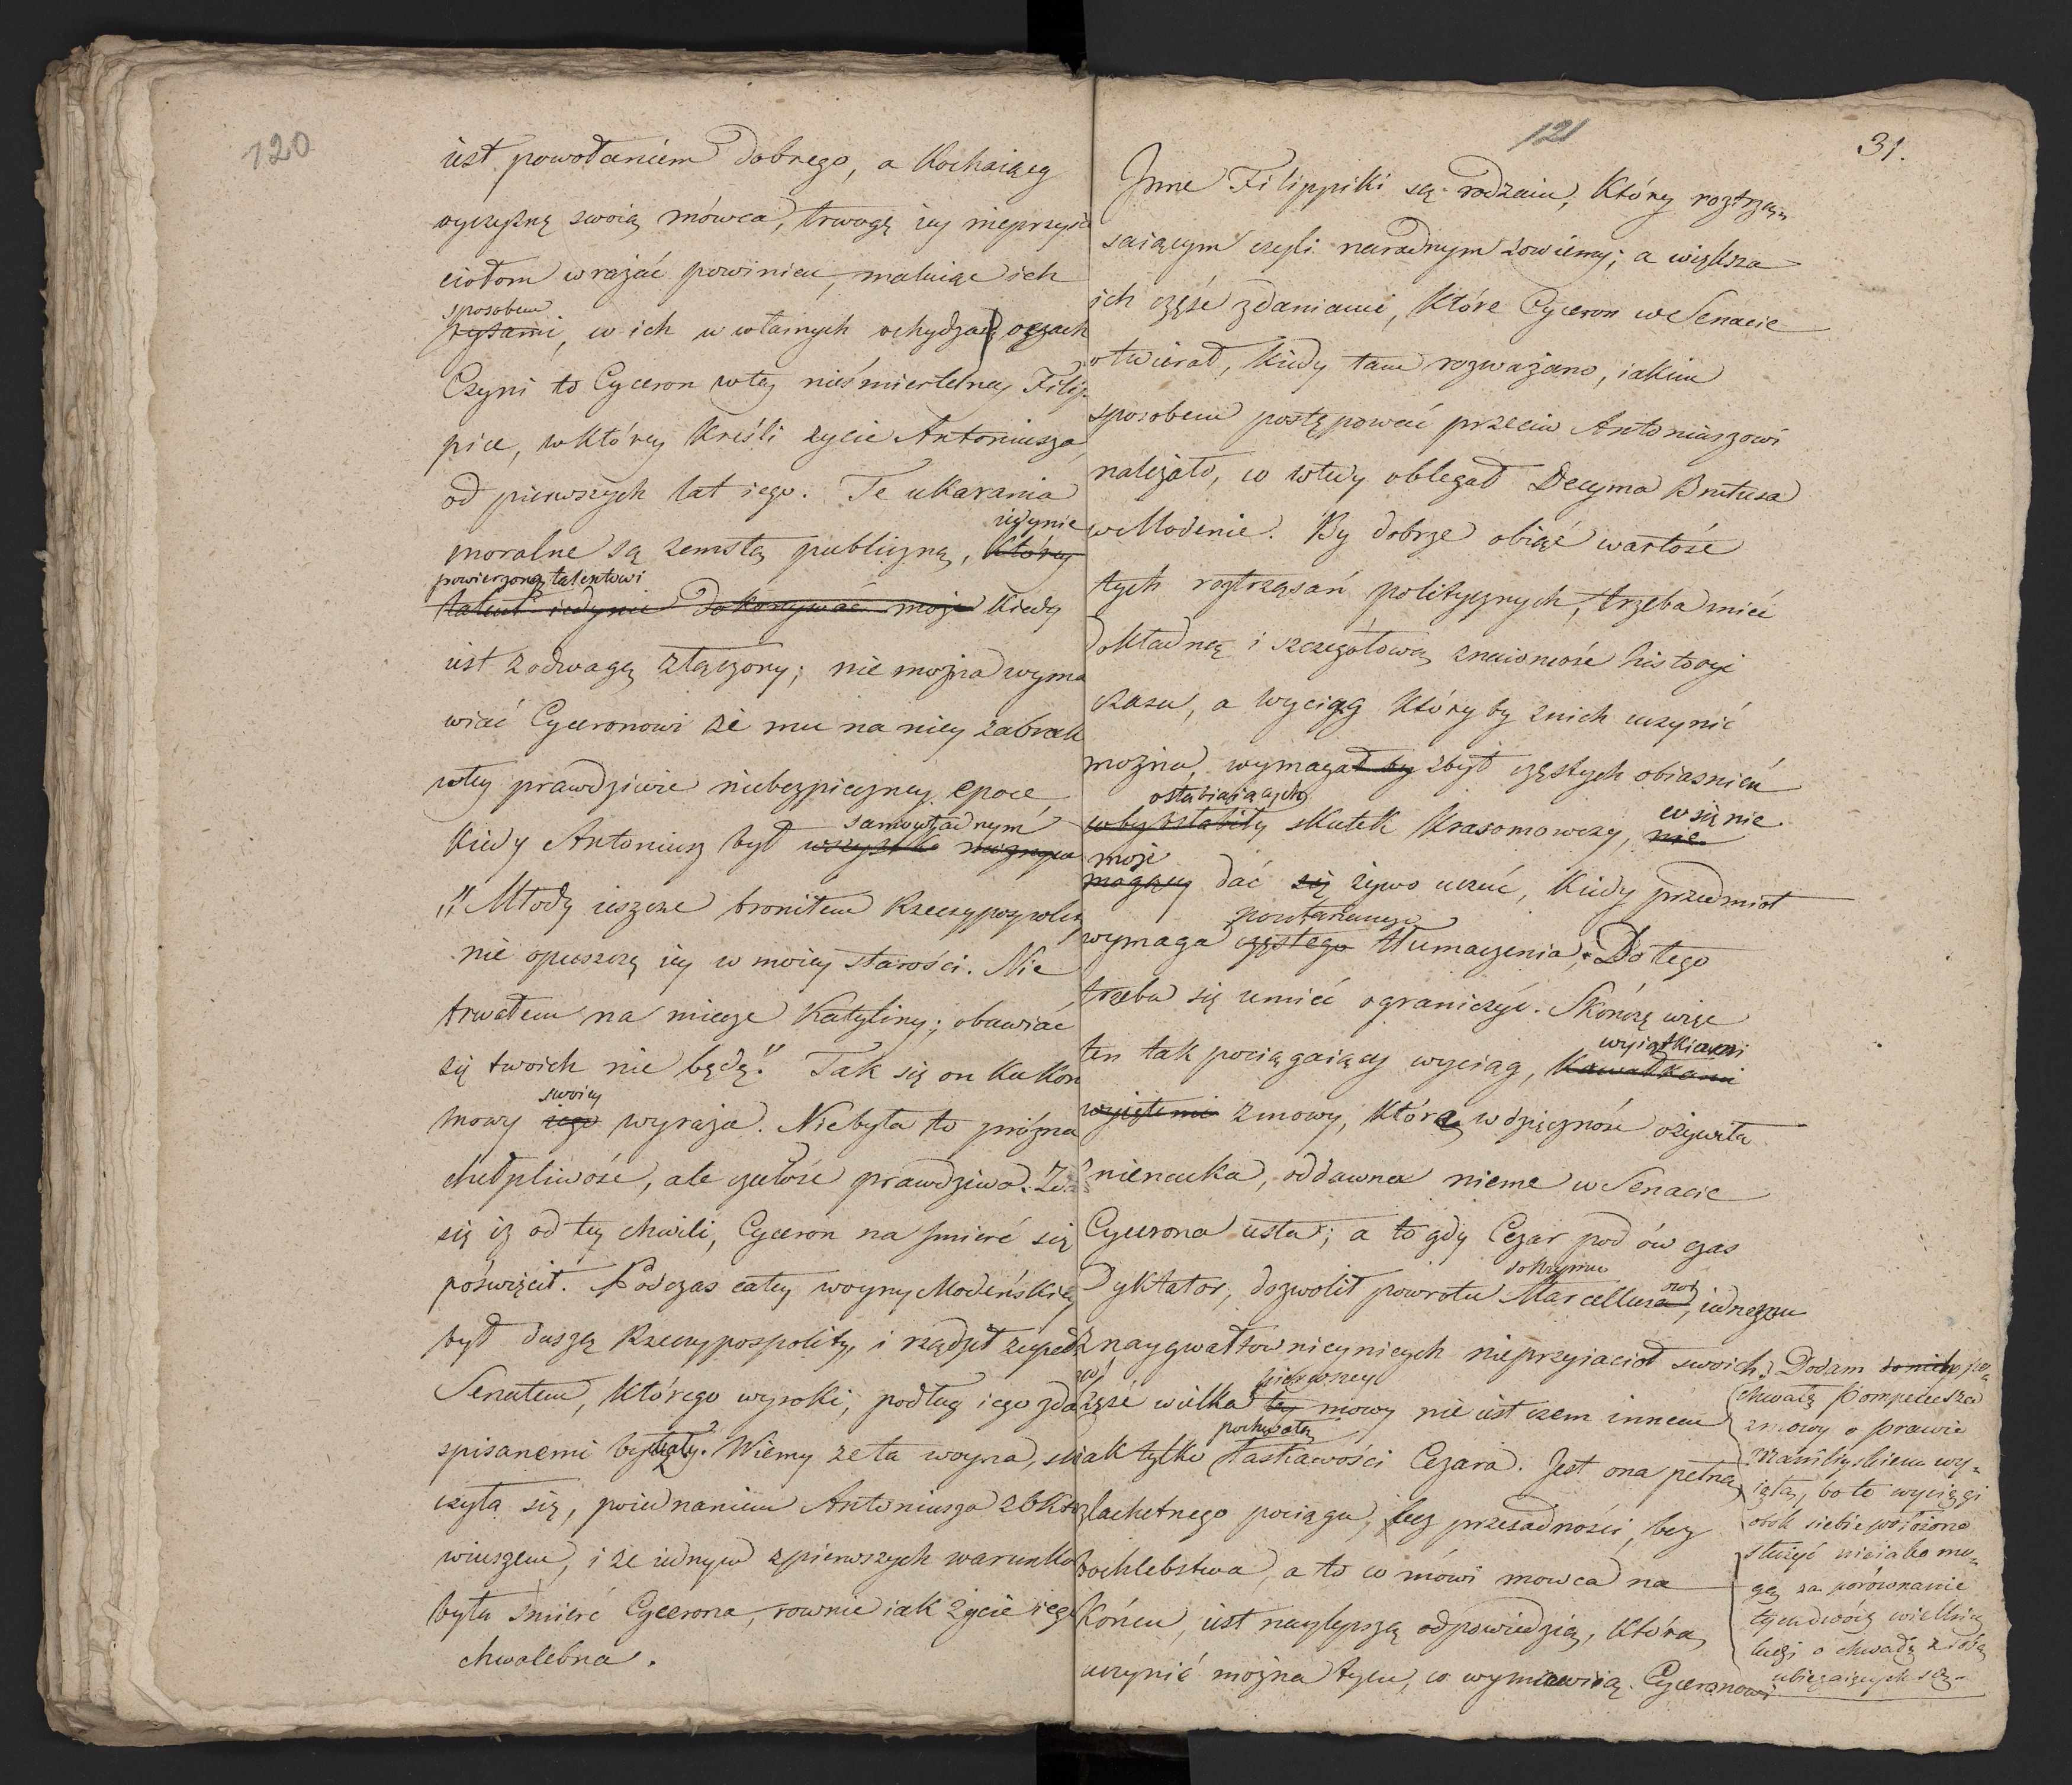 120
iest powołaniem dobrego, a kochaiącey
oyczyznę swoię mówca, trwogę iey nieprzyia
ciołom wrażać powinien, maluiąc ich
sposobem
rysami, w ich w własnych ochydzać oczach
Czyni to Cyceron wtey nieśmiertelney Filip
pice, wktórey kreśli życie Antoniusza
od pierwszych lat iego. Te ukarania
iedynie
moralne są zemstą publiczną, którey
powierzoną talentowi
talent iedynie dokonywać może kiedy
iest zodwagą złączony; nie można wyma
wiać Cyceronowi że mu na niey zabrak
wtey prawdziwie niebezpieczney epoce
samowładnym
kiedy Antoniusz był wszystko
„Młody ieszcze broniłem Rzeczypospolitey
nie opuszczę iey w moiey starości. Nie
trwałem na miecze Katyliny; obawiać
się twoich nie będę." Tak się on ku koń
swoiey
mowy iego wyraża. Niebyła to próżna
chełpliwość, ale czułość prawdziwa.
się iż od tey chwili, Cyceron na śmierć się
poświęcił. Podczas całey woyny Modeńskiey
był duszą Rzeczypospolitey, i rządził zupeł
Senatem, którego wyroki, podług iego zda
spisanemi bywały. Wiemy że ta woyna, sk
czyła się, poiednaniem Antoniusza z Okta
wiuszem, i że iednym zpierwszych warunków
była śmierć Cycerona, rownie iak życie iego
chwalebna.
121
31.
Inne Filippiki są rodzaiu, który roztrzą„
saiącym czyli naradnym zowiemy; a większa
ich część zdaniami, które Cyceron w Senacie
otwierał, kiedy tam rozważano, iakim
sposobem postępować przeciw Antoniuszowi
należało, co wtedy oblegał Decyma Brutusa
w Modenie. By dobrze obiąć wartość
tych roztrząsań politycznych, trzeba mieć
dokładną i szczegółową znaiomość historyi
czasu, a wyciąg któryby znich uczynić
można, wymagał by zbyt częstych obiaśnień
osłabiaiących
coby osłabiły skutek krasomowczy, nie
co się nie
może
mogący dać się żywo uczuć, kiedy przedmiot
powtarzanego
wymaga częstego tłumaczenia; Do tego
trzeba się umieć ograniczyć. Skończę więc
wyiątkiami
ten tak pociągaiący wyciąg, kawałkami
wyiętemi zmowy, którą wdzięczność ożywiła
znienacka, oddawna nieme w Senacie
Cycerona usta; a to gdy Cezar pod ów czas
do Rzymu
Dyktator, dozwolił powrotu Marcellusowi, iednemu
z naygwałtownieynieych nieprzyiaciół swoich.
pierwszey
część wielka tey mowy nie iest czem innem
pochwałą
iak tylko łaskawości Cezara. Jest ona pełną
szlachetnego pociągu, bez przesadności, bez
pochlebstwa, a to co mówi mowca na
końcu, iest naylepszą odpowiedzią, którą
uczynić można tym, co wymawiaią Cyceronowi
Dodam do nich po„
chwałę Pompeiusza
zmowy o prawie
Maniliyskiem wy„
iętą, bo te wyciągi
obok siebie położone
służyć nieiako mo„
gą za porównanie
tych dwóch wielkich
ludzi o chwałę z sobą
ubiegaiących się.